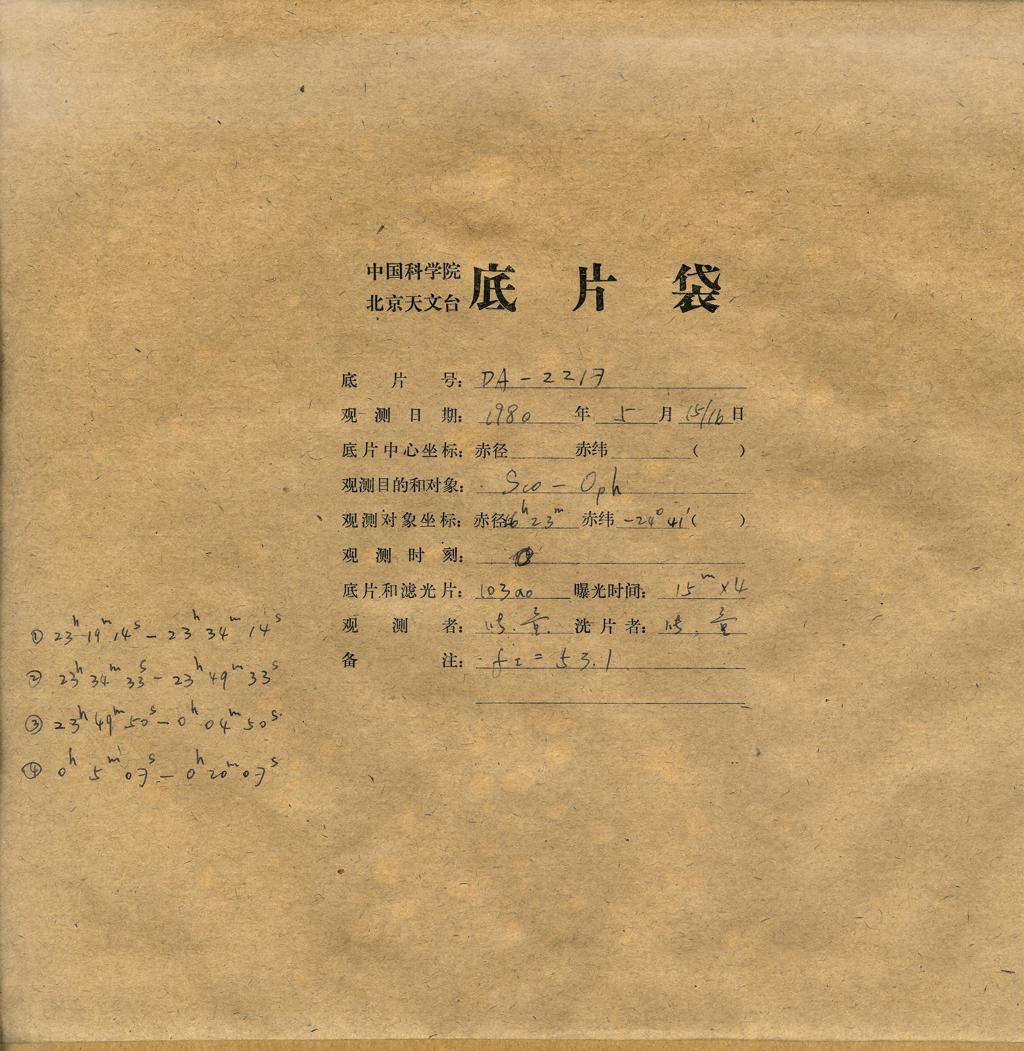 中国科学院
北京天文台
底片袋
底片号: DA-2217
观测日期: 1980年5月15/16日
底片中心坐标: 赤径 赤纬 ( )
观测目的和对象: Sco-Oph
观测对象坐标: 赤径16ʰ23ᵐ 赤纬-24°41′( )
观测时刻:
底片和滤光片: 103a0 曝光时间: 15ᵐ×4
观测者: 洗片者:
备注: fz=53.1
① 23ʰ19ᵐ14ˢ-23ʰ34ᵐ14ˢ
② 23ʰ34ᵐ33ˢ-23ʰ49ᵐ33ˢ
③ 23ʰ49ᵐ50ˢ-0ʰ04ᵐ50ˢ
④ 0ʰ5ᵐ07ˢ-0ʰ20ᵐ07ˢ